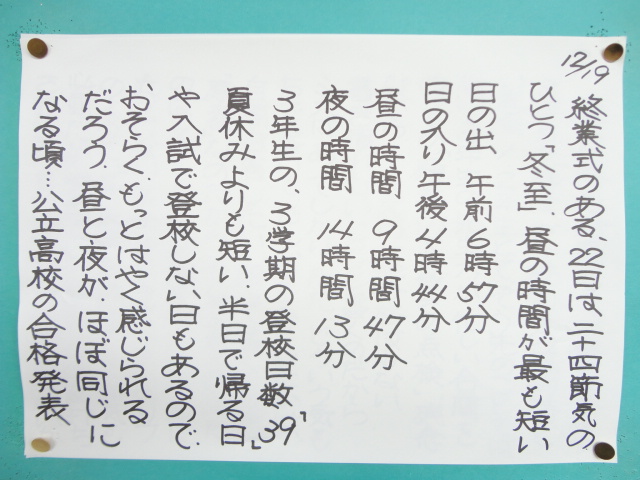 12/19
終業式のある、22日は二十四節気の
ひとつ「冬至」。昼の時間が最も短い
日の出 午前6時57分
日の入り 午後4時44分
昼の時間 9時間47分
夜の時間 14時間13分
3年生の、3学期の登校日数「39」
夏休みよりも短い。半日で帰る日
や入試で登校しない日もあるので、
おそらく、もっとはやく感じられる
だろう。昼と夜が、ほぼ同じに
なる頃…公立高校の合格発表